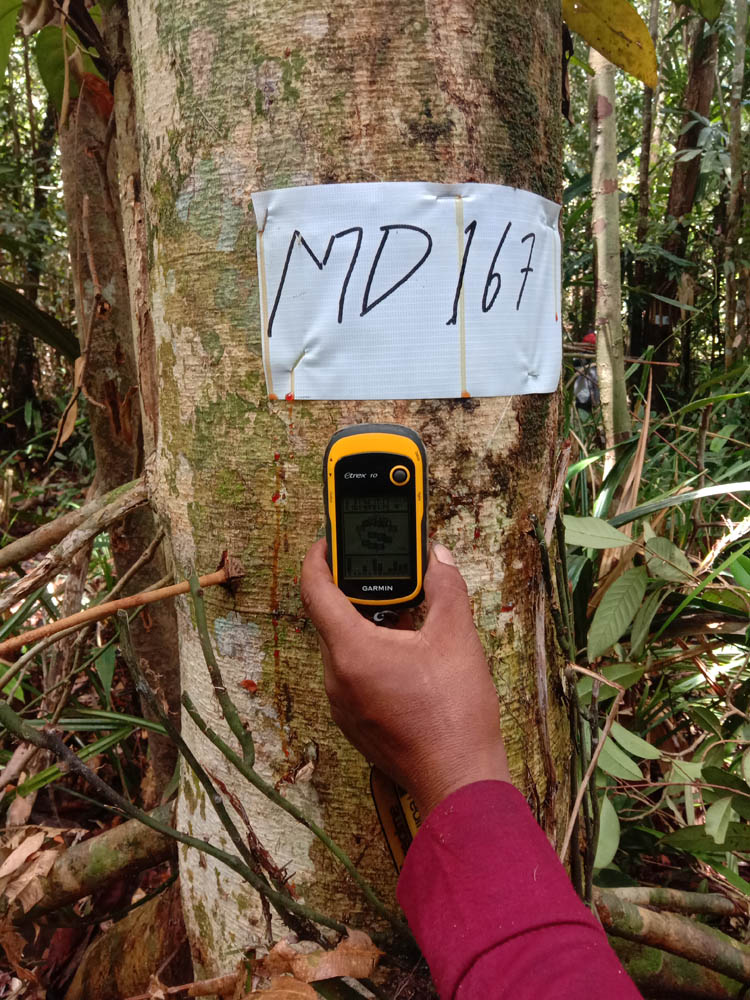 MD 167
etrex 10
GARMIN